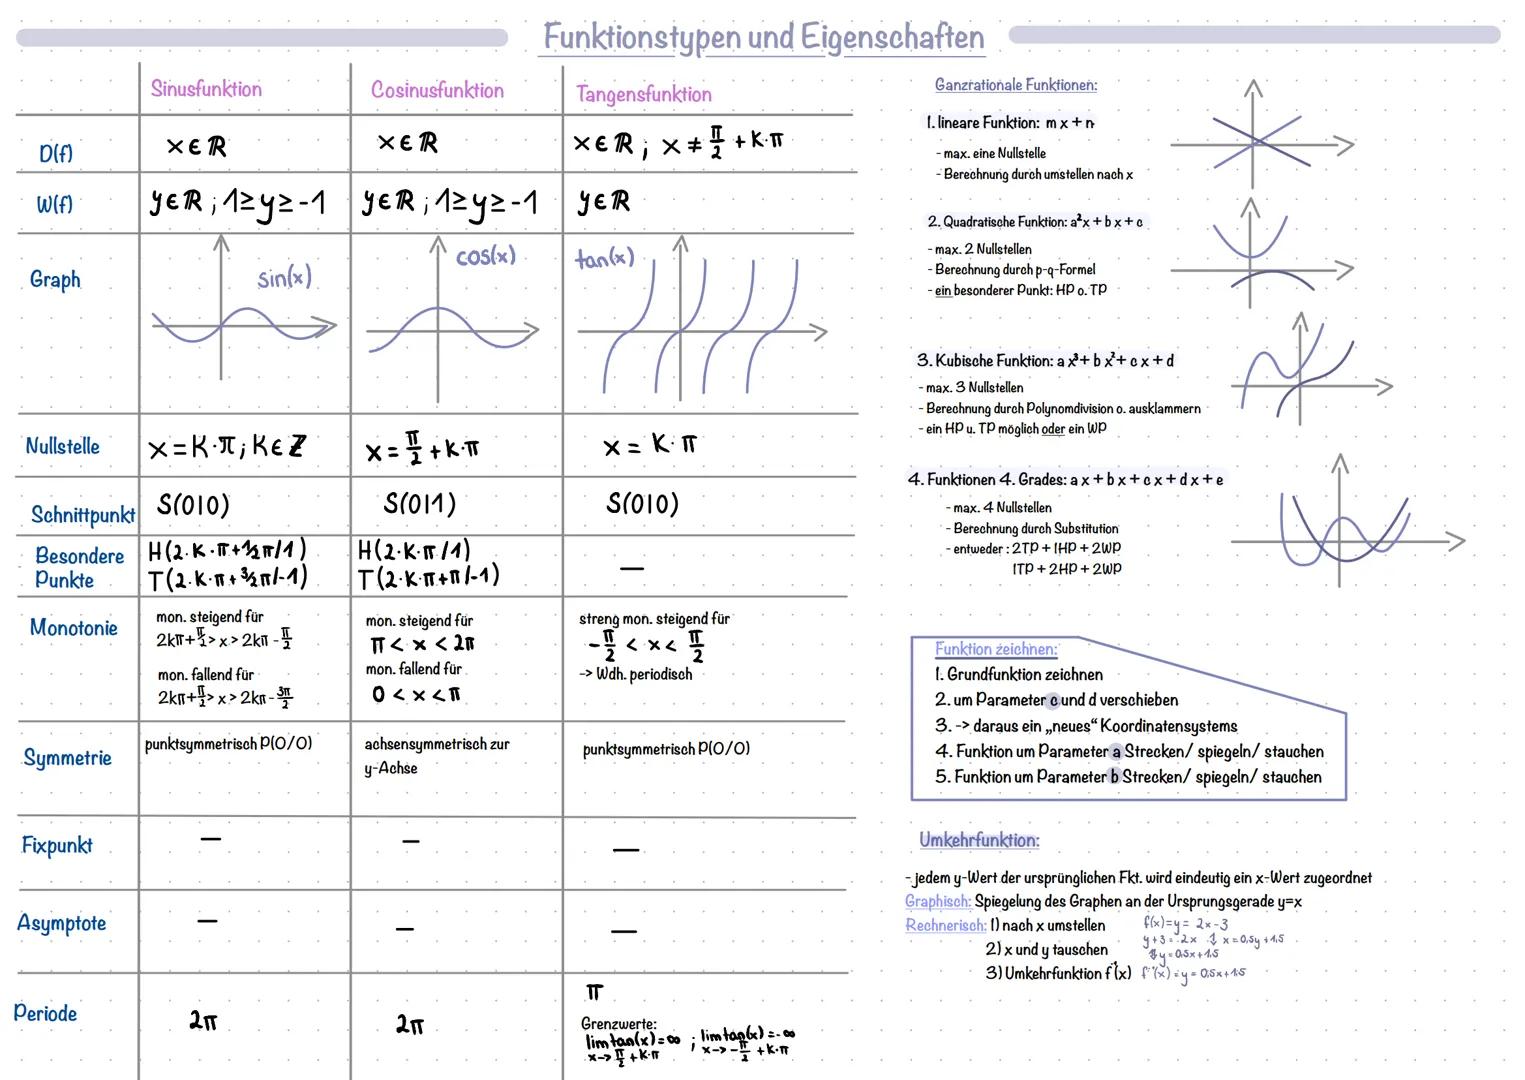 Funktionstypen und Eigenschaften
Sinusfunktion Cosinusfunktion Tangensfunktion
D(f) x∈ℝ x∈ℝ x∈ℝ ; x ≠ π/2 + K·π
W(f) y∈ℝ ; 1≥y≥-1 y∈ℝ ; 1≥y≥-1 y∈ℝ
Graph sin(x) cos(x) tan(x)
Nullstelle x=K·π; K∈ℤ x=π/2+K·π x = K·π
Schnittpunkt S(0|0) S(0|1) S(0|0)
Besondere Punkte
H(2·K·π+½π/1)
T(2·K·π+³⁄₂π/-1)
H(2·K·π/1)
T(2·K·π+π/-1)
—
Monotonie
mon. steigend für
2kπ+π/2>x>2kπ-π/2
mon. fallend für
2kπ+π/2>x>2kπ-3π/2
mon. steigend für
π<x<2π
mon. fallend für
0<x<π
streng mon. steigend für
-π/2<x<π/2
-> Wdh. periodisch
Symmetrie
punktsymmetrisch P(0/0)
achsensymmetrisch zur
y-Achse
punktsymmetrisch P(0/0)
Fixpunkt — — —
Asymptote — — —
Periode 2π 2π π
Grenzwerte:
lim tan(x)=∞ ; lim tan(x)=-∞
x->π/2+K·π x->-π/2+K·π
Ganzrationale Funktionen:
1. lineare Funktion: mx+n
- max. eine Nullstelle
- Berechnung durch umstellen nach x
2. Quadratische Funktion: a²x+bx+c
- max. 2 Nullstellen
- Berechnung durch p-q-Formel
- ein besonderer Punkt: HP o. TP
3. Kubische Funktion: ax³+bx²+cx+d
- max. 3 Nullstellen
- Berechnung durch Polynomdivision o. ausklammern
- ein HP u. TP möglich oder ein WP
4. Funktionen 4. Grades: ax+bx+cx+dx+e
- max. 4 Nullstellen
- Berechnung durch Substitution
- entweder: 2TP+1HP+2WP
1TP+2HP+2WP
Funktion zeichnen:
1. Grundfunktion zeichnen
2. um Parameter c und d verschieben
3. -> daraus ein „neues“ Koordinatensystems
4. Funktion um Parameter a Strecken/ spiegeln/ stauchen
5. Funktion um Parameter b Strecken/ spiegeln/ stauchen
Umkehrfunktion:
- jedem y-Wert der ursprünglichen Fkt. wird eindeutig ein x-Wert zugeordnet
Graphisch: Spiegelung des Graphen an der Ursprungsgerade y=x
Rechnerisch: 1) nach x umstellen
2) x und y tauschen
3) Umkehrfunktion f⁻¹(x)
f(x)=y= 2x-3
y+3= 2x x=0,5y+1,5
y=0,5x+1,5
f⁻¹(x)=y=0,5x+1,5